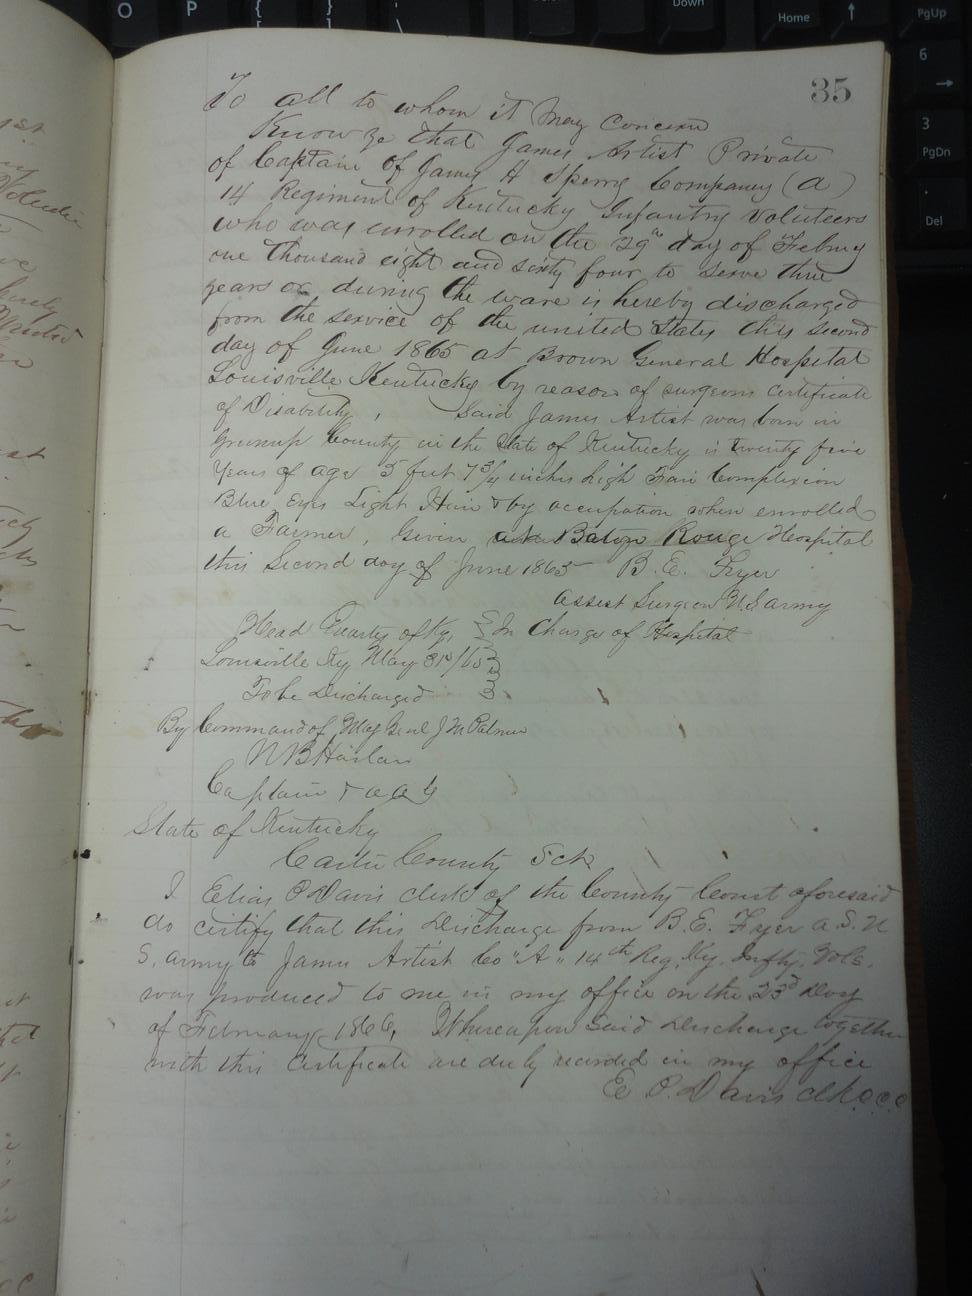 O P { [ Down Home ↑ PgUp
6 →
3 PgDn
. Del
35
To all to whom it May Concern
Know ye that James Artist Private
of Captain of James H Sperry Company (a)
14 Regiment of Kentucky Infantry Voluteers
who was enrolled on the 29th day of Febury
one thousand eight and sixty four to serve three
years or during the ware is hereby discharged
from the service of the united States this second
day of June 1865 at Brown General Hospital
Louisville Kentucky by reason of surgeons certificate
of Disability, Said James Artist was born in
Greenup County in the State of Kentucky is twenty five
Years of age 5 feet 7 3/4 inches high Fair Complexion
Blue Eyes Light Hair & by occupation when enrolled
a Farmer, Given at Baton Rouge Hospital
this Second day of June 1865 B. E. Fryer
assest Surgeon U S army
Head Quarters of Ky, In Charge of Hospital
Louisville Ky May 31st/65
To be Discharged
By Command of Maj Genl J M Palmer
N B Harlan
Captain & a a G
State of Kentucky
Carter County Sct
I Elias P Davis clerk of the County Court aforesaid
do certify that this Discharge from B. E. Fryer a. S. U
S. army to James Artist Co "A" 14th Reg. Ky. Infty. Vols.
was produced to me in my office on the 23d Day
of February 1866, Whereupon Said Discharge together
with this Certificate are duly recorded in my office
E P. Davis clk. c. c. c